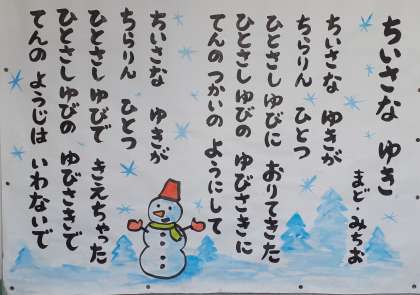 ちいさな ゆき
まど・みちお
ちいさな ゆきが
ちらりん ひとつ
ひとさしゆびに おりてきた
ひとさしゆびの ゆびさきに
てんの つかいの ようにして
ちいさな ゆきが
ちらりん ひとつ
ひとさしゆびで きえちゃった
ひとさしゆびの ゆびさきで
てんの ようじは いわないで